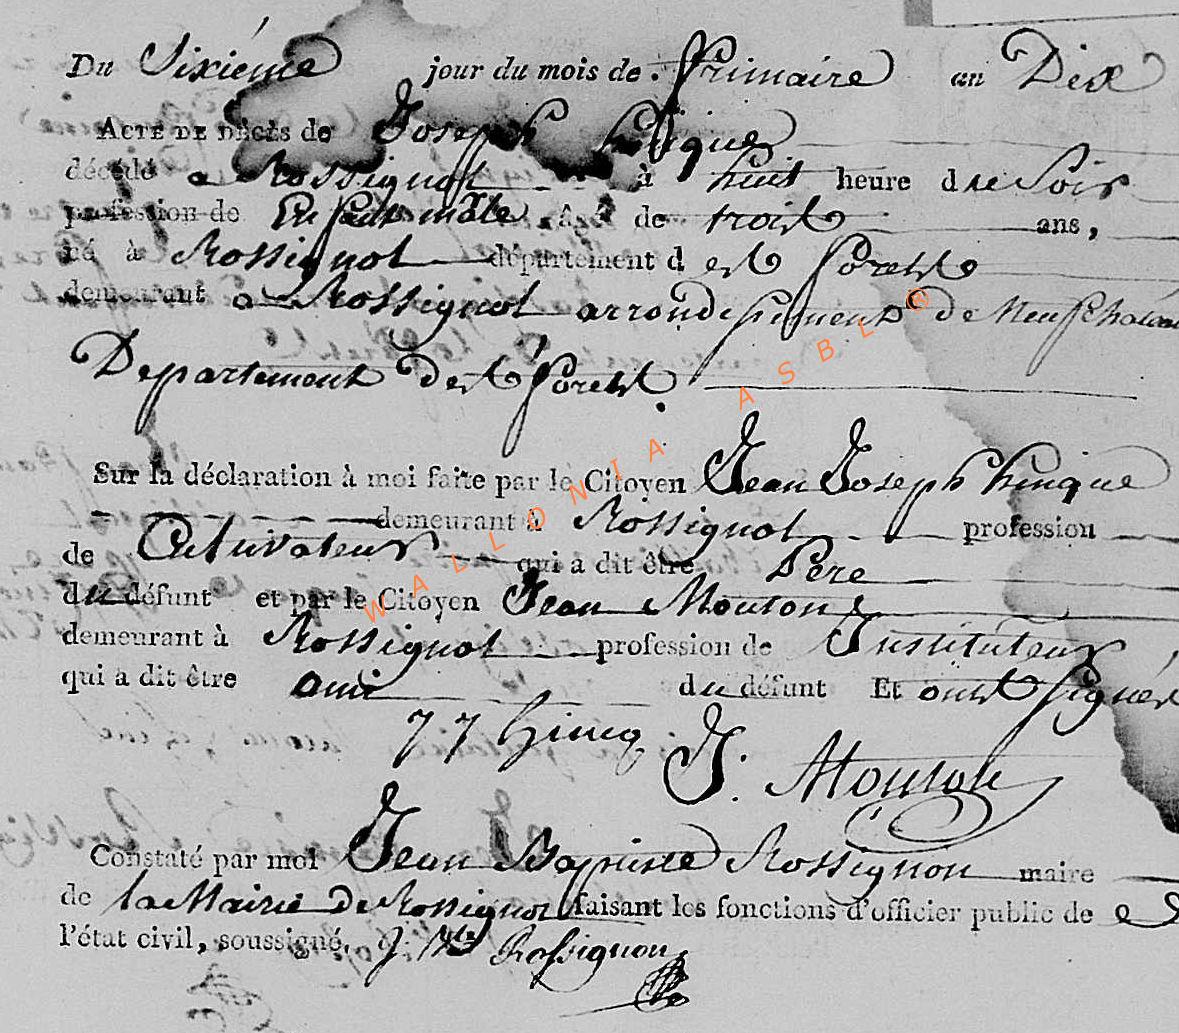 Du Sixiéme jour du mois de Frimaire an Dix
ACTE DE DÉCÈS de Joseph hinque
décédé a Rossignol à huit heure due Soir
profession de Enfant mâle âgé de trois ans,
né à Rossignol département d est forest
demeurant a Rossignol arrondissement de Neufchateau
Departement dest forest
Sur la déclaration à moi faite par le Citoyen Jean Joseph hinque
demeurant à Rossignol profession
de Cultivateur qui a dit être Pere
du défunt et par le Citoyen Jean Mouton
demeurant à Rossignol profession de Instituteur
qui a dit être ami du défunt Et ont signés
J J hinq J. Mouton
Constaté par moi Jean Baptiste Rossignon maire
de la Mairie de Rossignol faisant les fonctions d'officier public de
l'état civil, soussigné. J. Bte Rossignon
WALLONIA ASBL ®